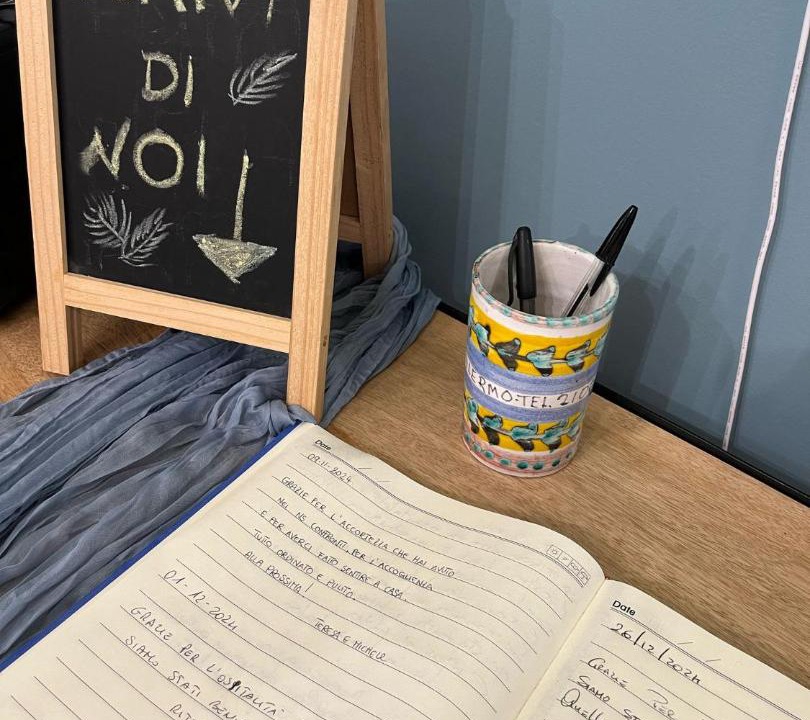 DI
NOI!
ERMO-TEL. 210
Date
09.11.2024
GRAZIE PER L'ACCORTEZZA CHE HAI AVUTO
NEI NS CONFRONTI, PER L'ACCOGLIENZA
E PER AVERCI FATTO SENTIRE A CASA.
TUTTO ORDINATO E PULITO.
ALLA PROSSIMA!
TERESA E MICHELE
01-12-2024
GRAZIE PER L'OSPITALITÀ
SIAMO STATI BEN
Date
26/12/2024
GRAZIE PER
SIAMO ST
QUELL